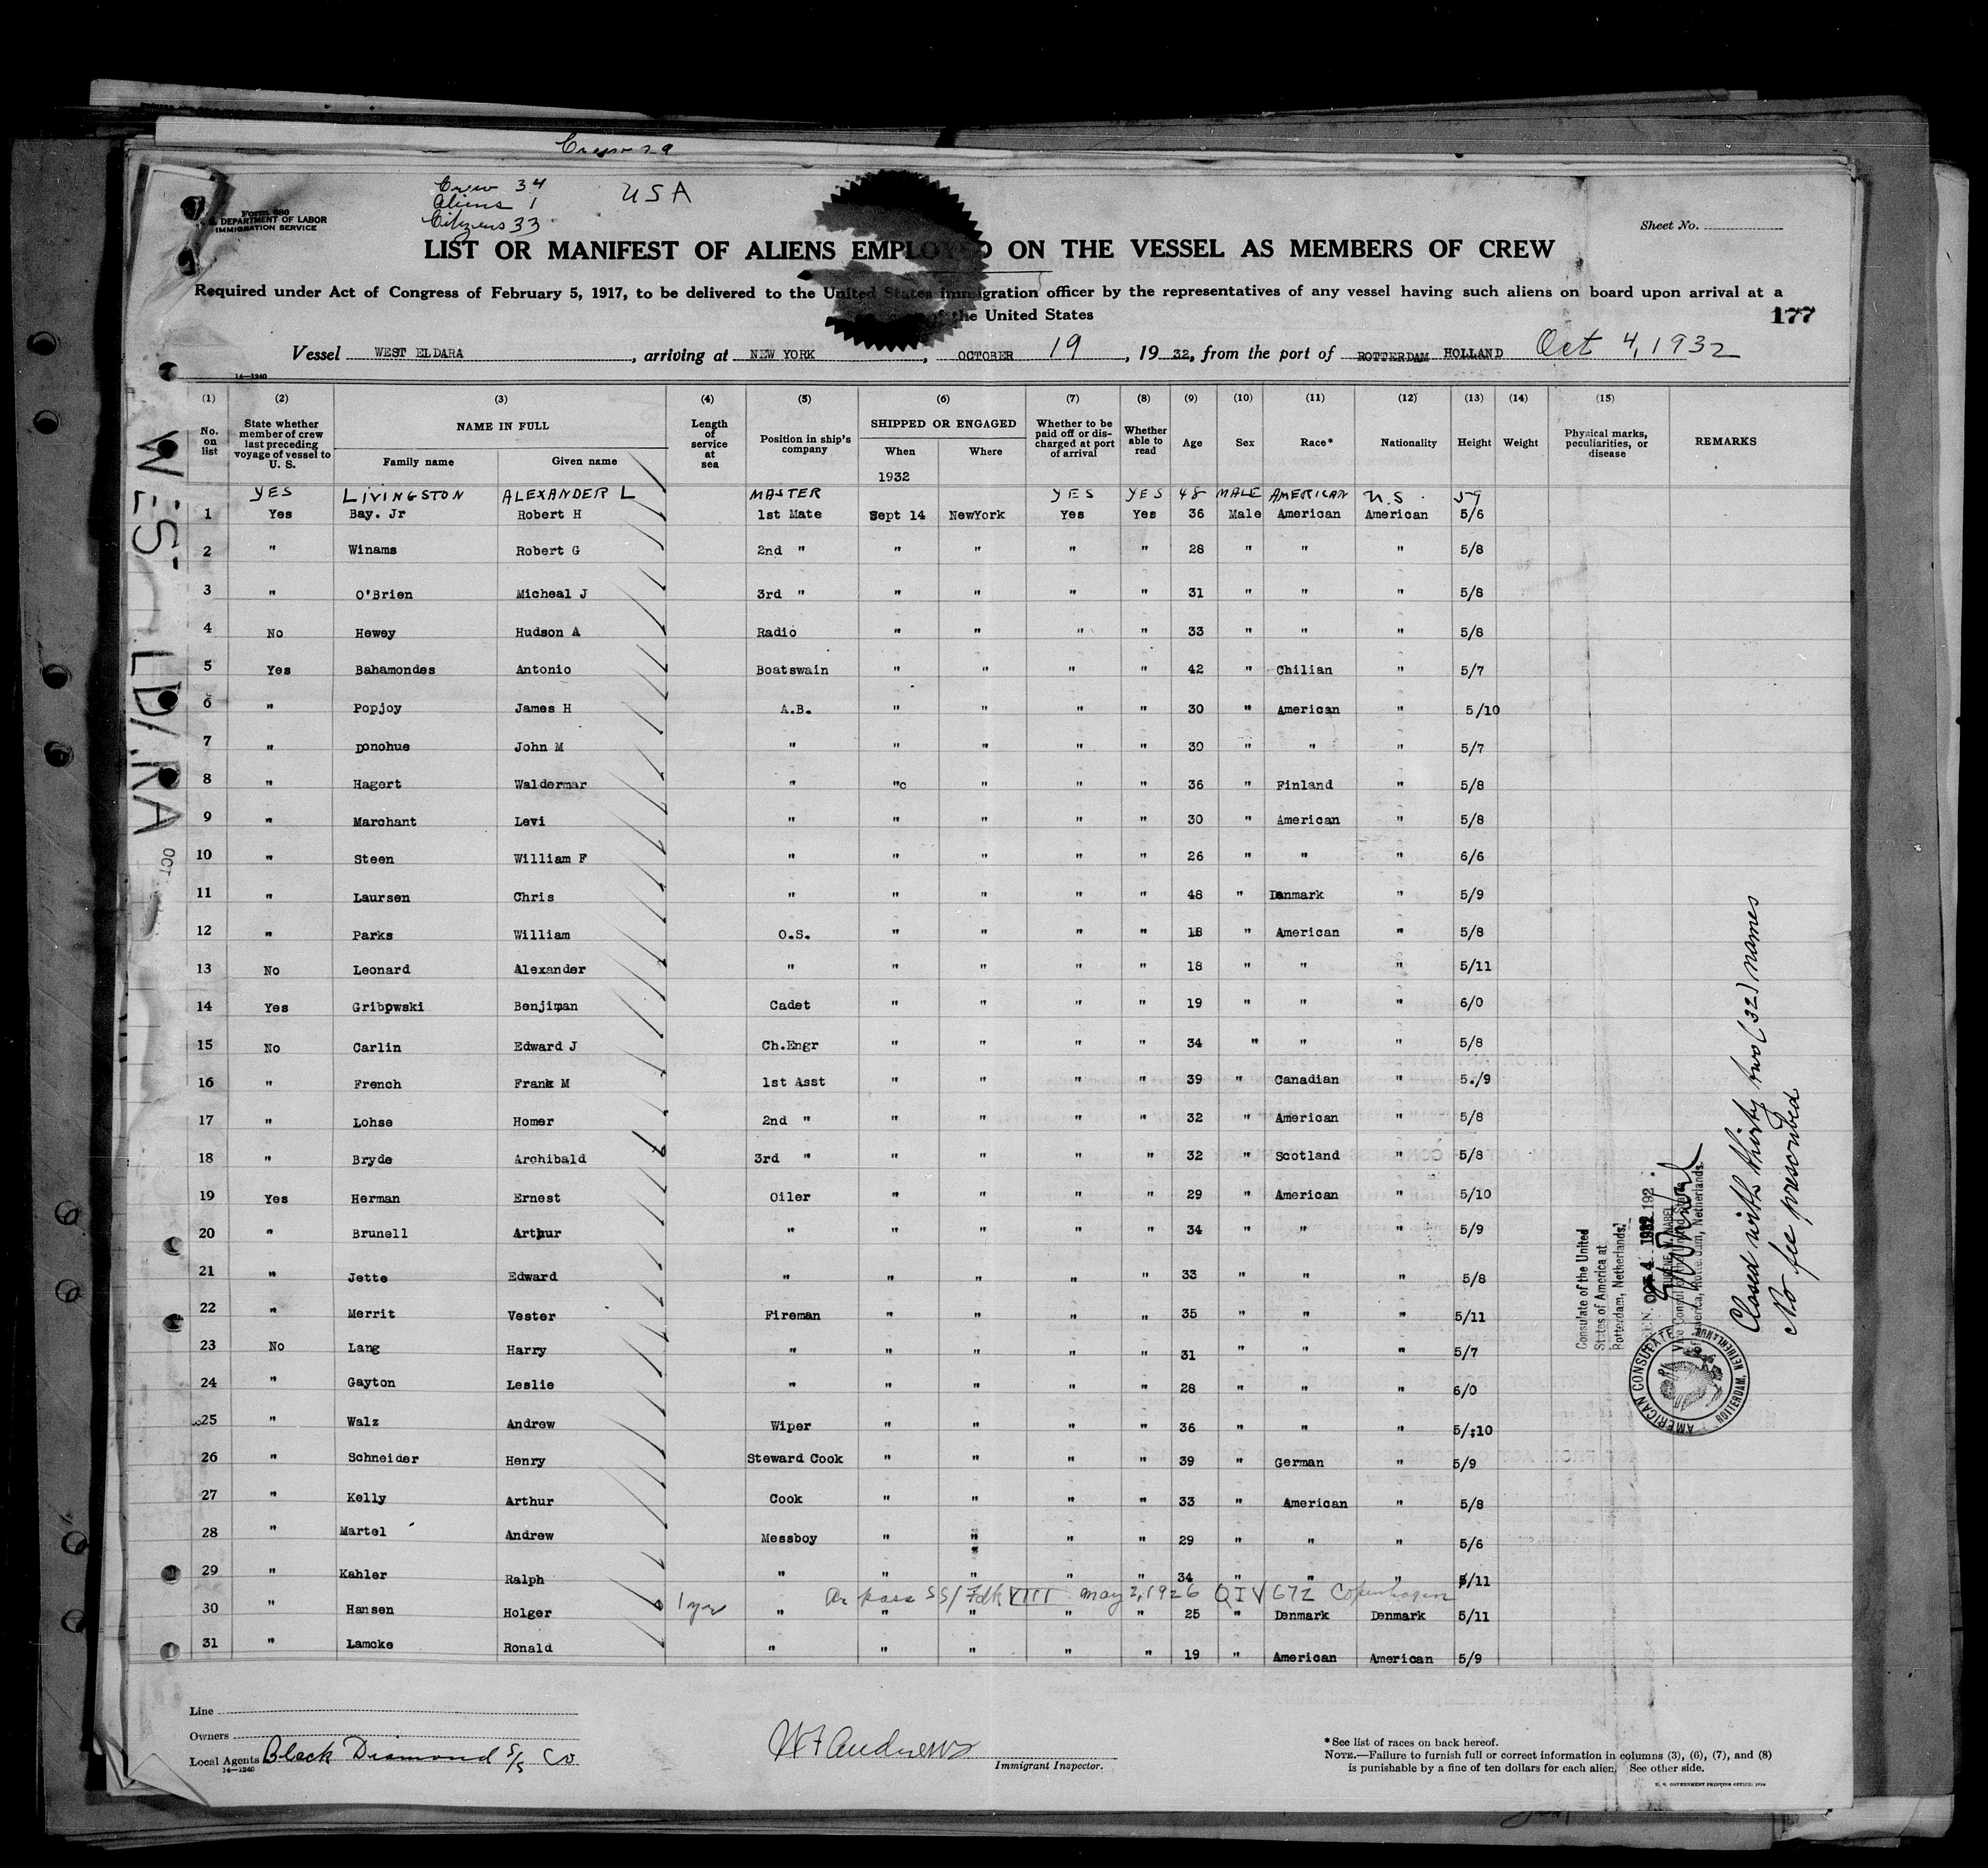 Crew 29
Crew 34
Aliens 1
Citizens 33
USA
Form 680
U. S. DEPARTMENT OF LABOR
IMMIGRATION SERVICE
Sheet No.
LIST OR MANIFEST OF ALIENS EMPLOYED ON THE VESSEL AS MEMBERS OF CREW
Required under Act of Congress of February 5, 1917, to be delivered to the United States immigration officer by the representatives of any vessel having such aliens on board upon arrival at a
of the United States
177
Vessel WEST ELDARA, arriving at NEW YORK, OCTOBER 19, 1932, from the port of ROTTERDAM HOLLAND Oct 4, 1932
14—1240
(1) (2) (3) (4) (5) (6) (7) (8) (9) (10) (11) (12) (13) (14) (15)
No. on list State whether member of crew last preceding voyage of vessel to U. S. NAME IN FULL Family name Given name Length of service at sea Position in ship's company SHIPPED OR ENGAGED When Where Whether to be paid off or discharged at port of arrival Whether able to read Age Sex Race* Nationality Height Weight Physical marks, peculiarities, or disease REMARKS
1932
YES LIVINGSTON ALEXANDER L MASTER YES YES 48 MALE AMERICAN U.S. 5-9
1 Yes Bay. Jr Robert H 1st Mate Sept 14 NewYork Yes Yes 36 Male American American 5/6
2 " Winams Robert G 2nd " " " " " 28 " " " 5/8
3 " O'Brien Micheal J 3rd " " " " " 31 " " " 5/8
4 No Hewey Hudson A Radio " " " " 33 " " " 5/8
5 Yes Bahamondes Antonio Boatswain " " " " 42 " Chilian " 5/7
6 " Popjoy James H A.B. " " " " 30 " American " 5/10
7 " Donohue John M " " " " " 30 " " " 5/7
8 " Hagert Waldermar " "c " " " 36 " Finland " 5/8
9 " Marchant Levi " " " " " 30 " American " 5/8
10 " Steen William F " " " " " 26 " " " 6/6
11 " Laursen Chris " " " " " 48 " Denmark " 5/9
12 " Parks William O.S. " " " " 18 " American " 5/8
13 No Leonard Alexander " " " " " 18 " " " 5/11
14 Yes Gribowski Benjiman Cadet " " " " 19 " " " 6/0
15 No Carlin Edward J Ch.Engr " " " " 34 " " " 5/8
16 " French Frank M 1st Asst " " " " 39 " Canadian " 5./9
17 " Lohse Homer 2nd " " " " " 32 " American " 5/8
18 " Bryde Archibald 3rd " " " " " 32 " Scotland " 5/8
19 Yes Herman Ernest Oiler " " " " 29 " American " 5/10
20 " Brunell Arthur " " " " " 34 " " " 5/9
21 " Jette Edward " " " " " 33 " " " 5/8
22 " Merrit Vester Fireman " " " " 35 " " " 5/11
23 No Lang Harry " " " " " 31 " " " 5/7
24 " Gayton Leslie " " " " " 28 " " " 6/0
25 " Walz Andrew Wiper " " " " 36 " " " 5/:10
26 " Schneider Henry Steward Cook " " " " 39 " German " 5/9
27 " Kelly Arthur Cook " " " " 33 " American " 5/8
28 " Martel Andrew Messboy " " " " 29 " " " 5/6
29 " Kahler Ralph " " " " " 34 " " " 5/11
Ar pass SS/ Fdk VIII May 2, 1926 QIV 672 Copenhagen
30 " Hansen Holger 1 yr " " " " " 25 " Denmark Denmark 5/11
31 " Lamcke Ronald " " " " " 19 " American American 5/9
WEST ELDARA
OCT
Closed with thirty two (32) names
No fee prescribed
Consulate of the United
States of America at
Rotterdam, Netherlands.
OCT 4 1932 192
Vice Consul of the United States of
America, Rotterdam, Netherlands.
AMERICAN CONSULATE ROTTERDAM, NETHERLANDS
Line
Owners
Local Agents Black Diamond S/S Co
14—1240
W F Andrews
Immigrant Inspector.
*See list of races on back hereof.
NOTE.—Failure to furnish full or correct information in columns (3), (6), (7), and (8)
is punishable by a fine of ten dollars for each alien. See other side.
U. S. GOVERNMENT PRINTING OFFICE: 1929